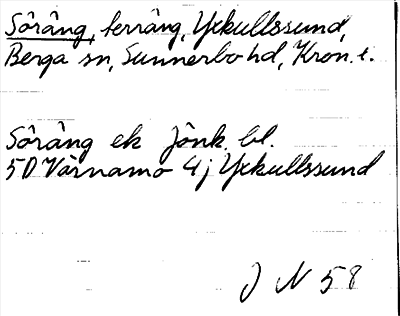 Sôrâng, terräng, Yxkullssund,
Berga sn, Sunnerbo hd, Kron. l.
Sôrâng ek Jönk. bl.
5D Värnamo 4j Yxkullssund
J N 58